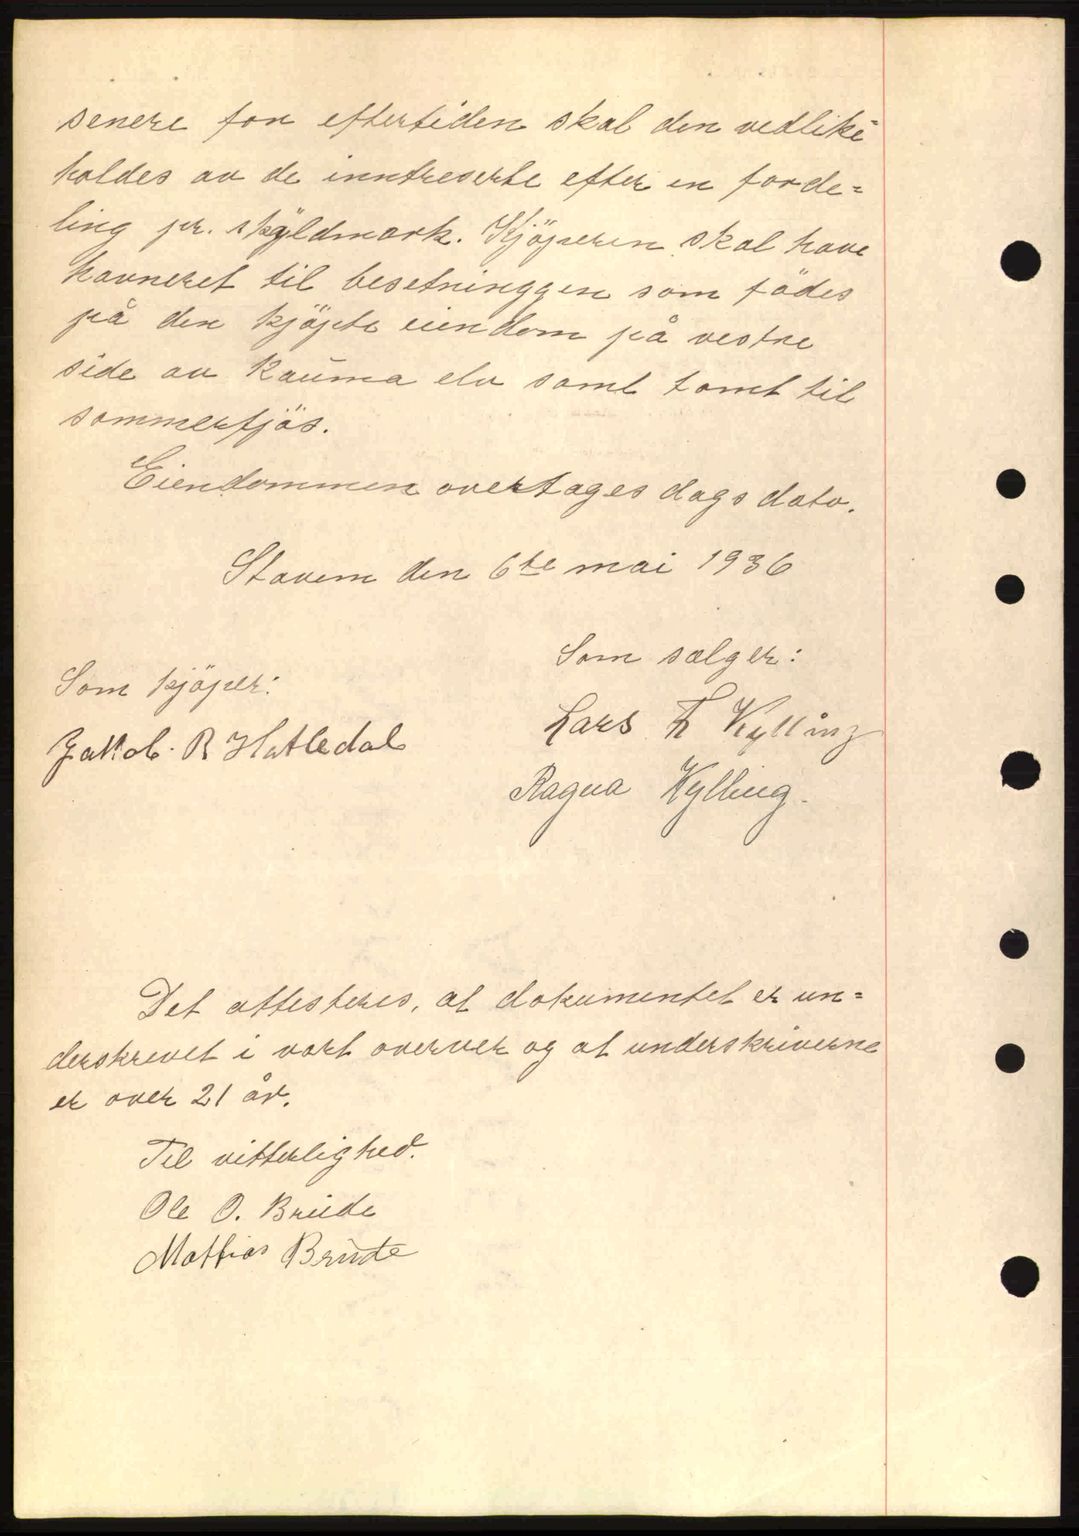 senere for eftertiden skal den vedlike
holdes av de inntreserte efter en forde=
ling pr. skyldmark. Kjöperen skal have
havneret til besetninggen som födes
på den kjöpte eiendom på vestre
side av Rauma elv samt tomt til
sommerfjös.
Eiendommen overtages dags dato.
Stavem den 6te mai 1936
Som sælger:
Som kjöper:
Lars Th Kylling
Jakob. R Hatledal
Ragna Kylling.
Det attesteres, at dokumentet er un=
derskrevet i vort overver og at underskriverne
er over 21 år.
Til vitterlighed.
Ole O. Brude
Mathias Brude